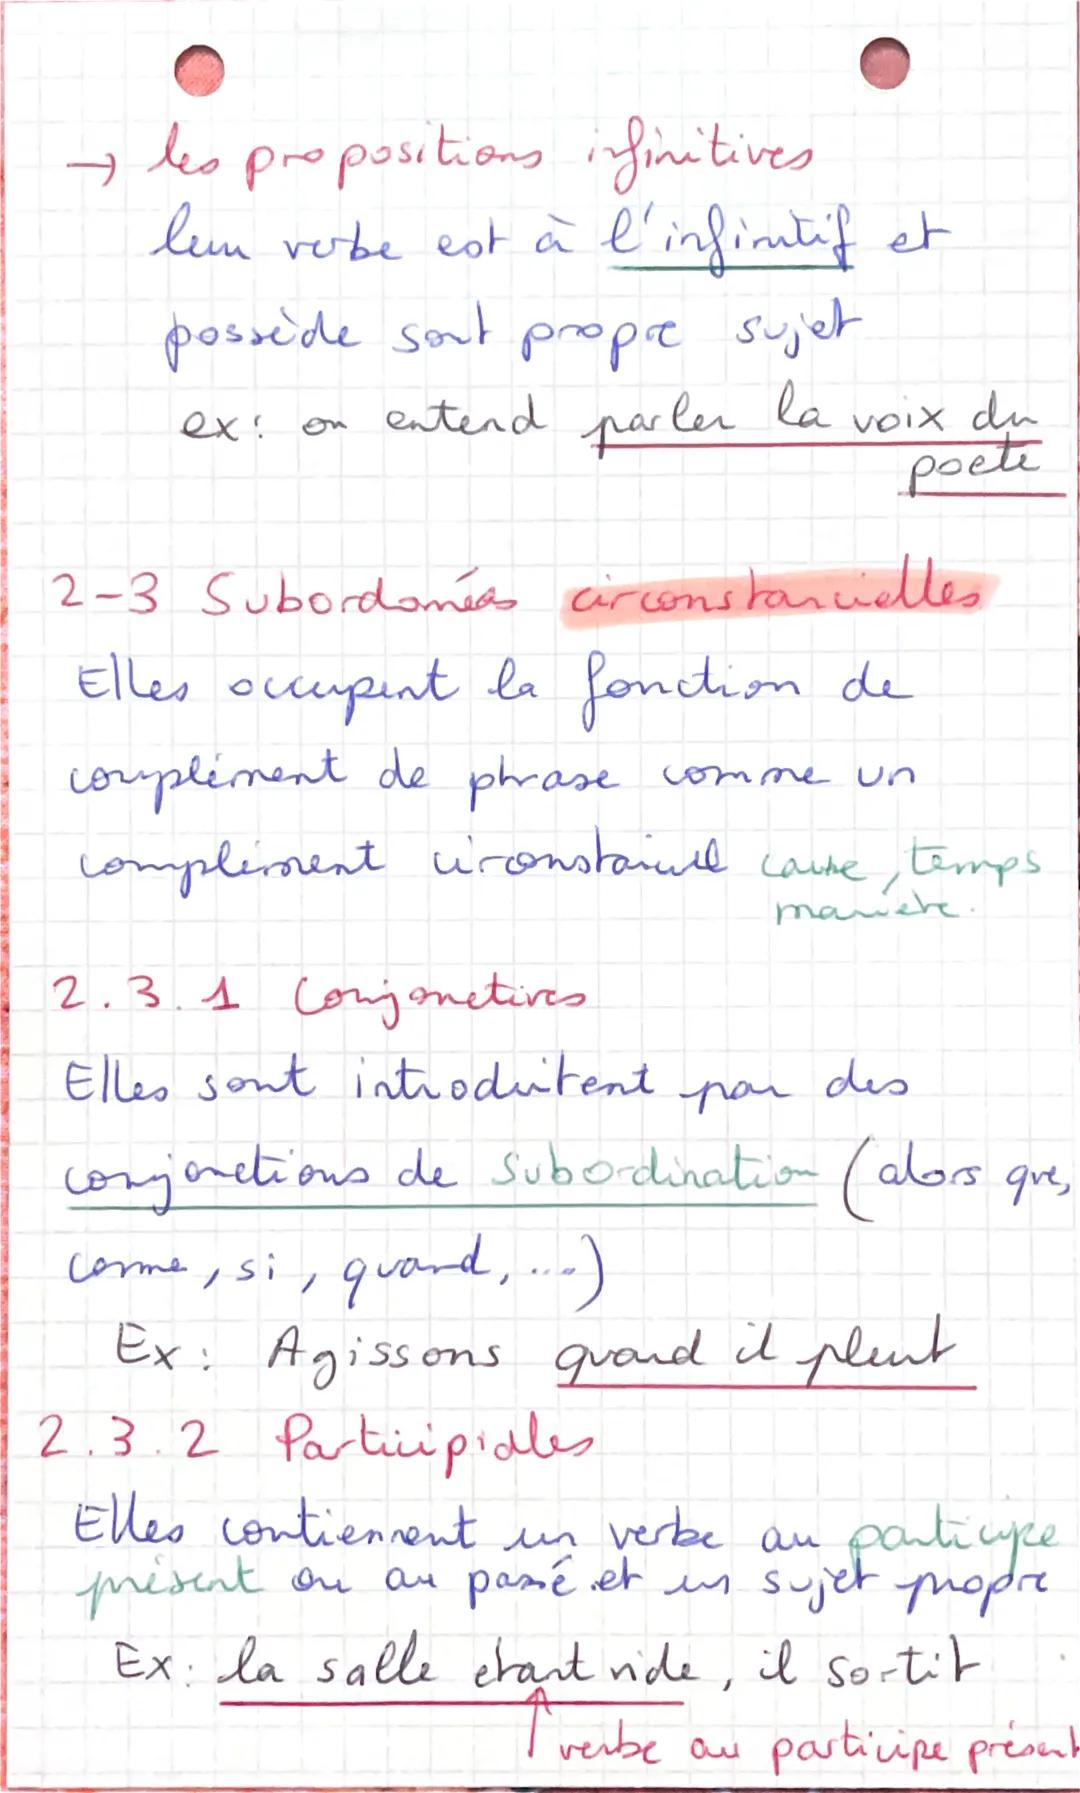 → les propositions infinitives
leur verbe est à l'infinitif et
possède sont propre sujet
ex: on entend parler la voix du
poete
2-3 Subordonnées circonstancielles
Elles occupent la fonction de
complément de phrase comme un
complément circonstanciel cause, temps
manière.
2.3.1 Conjonctives
Elles sont introduitent par des
conjonctions de subordination (alors que,
comme, si, quand, ....)
Ex: Agissons quand il pleut
2.3.2 Participiales
Elles contiennent un verbe au participe
présent ou au passé et un sujet propre
Ex: la salle étant vide, il sortit
verbe au participe présent